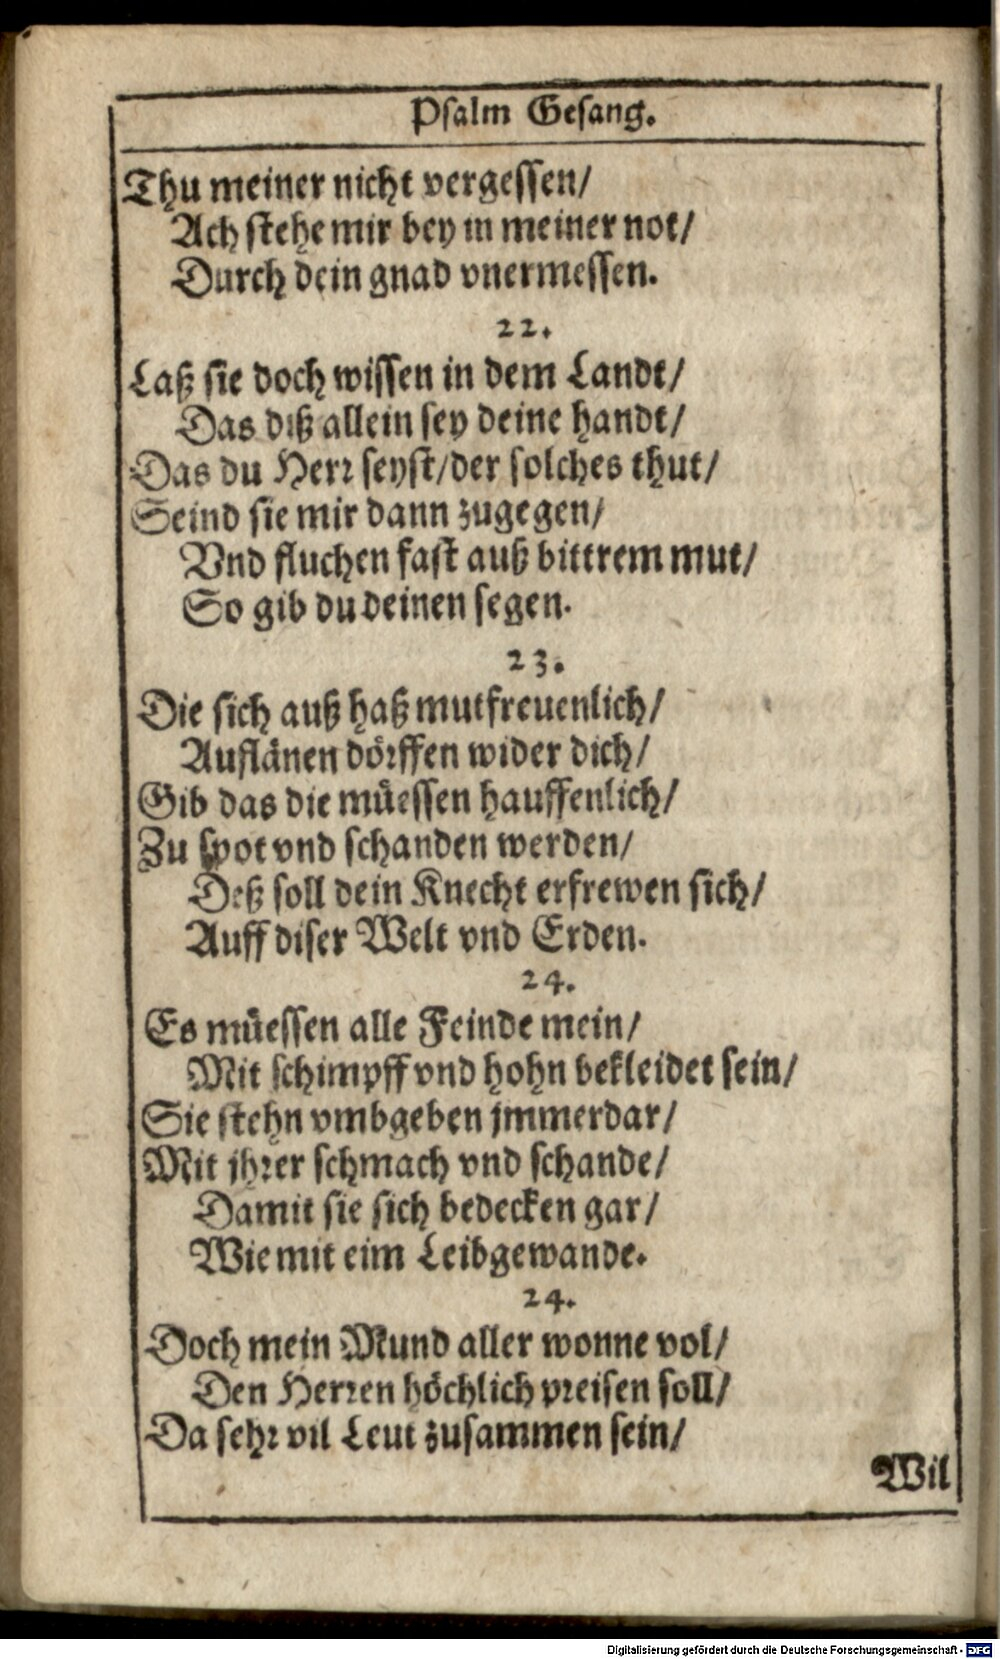 Psalm Gesang.
Thu meiner nicht vergessen/
Ach stehe mir bey in meiner not/
Durch dein gnad vnermessen.
22.
Laß sie doch wissen in dem Landt/
Das diß allein sey deine handt/
Das du Herr seyst/der solches thut/
Seind sie mir dann zugegen/
Vnd fluchen fast auß bittrem mut/
So gib du deinen segen.
23.
Die sich auß haß mutfreuenlich/
Auflänen dörffen wider dich/
Gib das die müessen hauffenlich/
Zu spot vnd schanden werden/
Deß soll dein Knecht erfrewen sich/
Auff diser Welt vnd Erden.
24.
Es müessen alle Feinde mein/
Mit schimpff vnd hohn bekleidet sein/
Sie stehn vmbgeben jmmerdar/
Mit jhrer schmach vnd schande/
Damit sie sich bedecken gar/
Wie mit eim Leibgewande.
24.
Doch mein Mund aller wonne vol/
Den Herren höchlich preisen soll/
Da sehr vil Leut zusammen sein/
Wil
Digitalisierung gefördert durch die Deutsche Forschungsgemeinschaft - DFG